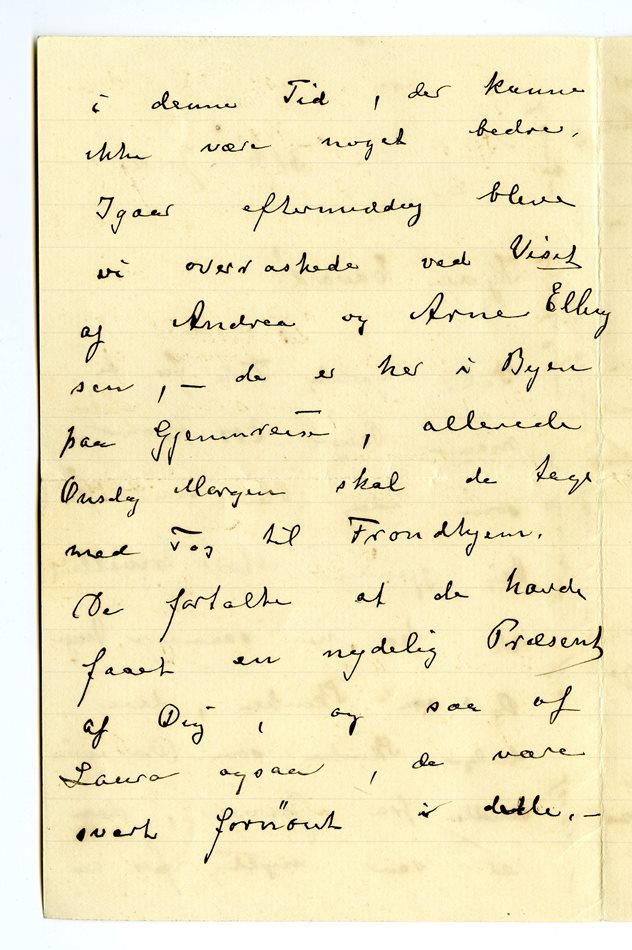 i denne Tid, der kunne
ikke være noget bedre.
Igaar eftermiddag bleve
vi overraskede ved Visit
af Andrea og Arne Elling
sen, – de er her i Byen
paa Gjennreise, allerede
Onsdag Morgen skal de tage
med Tog til Trondhjem.
De fortalte at de havde
faaet en nydelig Præsent
af Dig, og saa af
Laura ogsaa, de være
svert fornöiet i dette. –